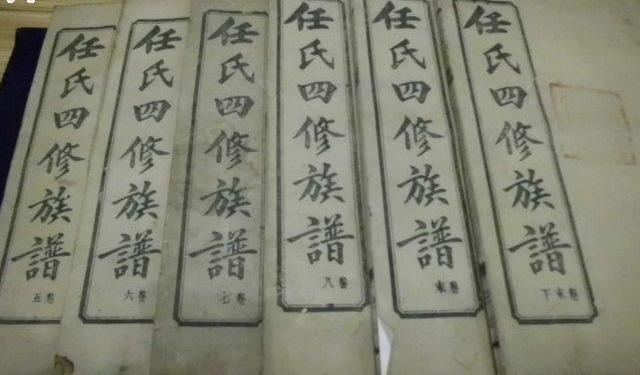 任氏四修族譜
卷五
任氏四修族譜
卷六
任氏四修族譜
卷七
任氏四修族譜
卷八
任氏四修族譜
卷末
任氏四修族譜
卷末下